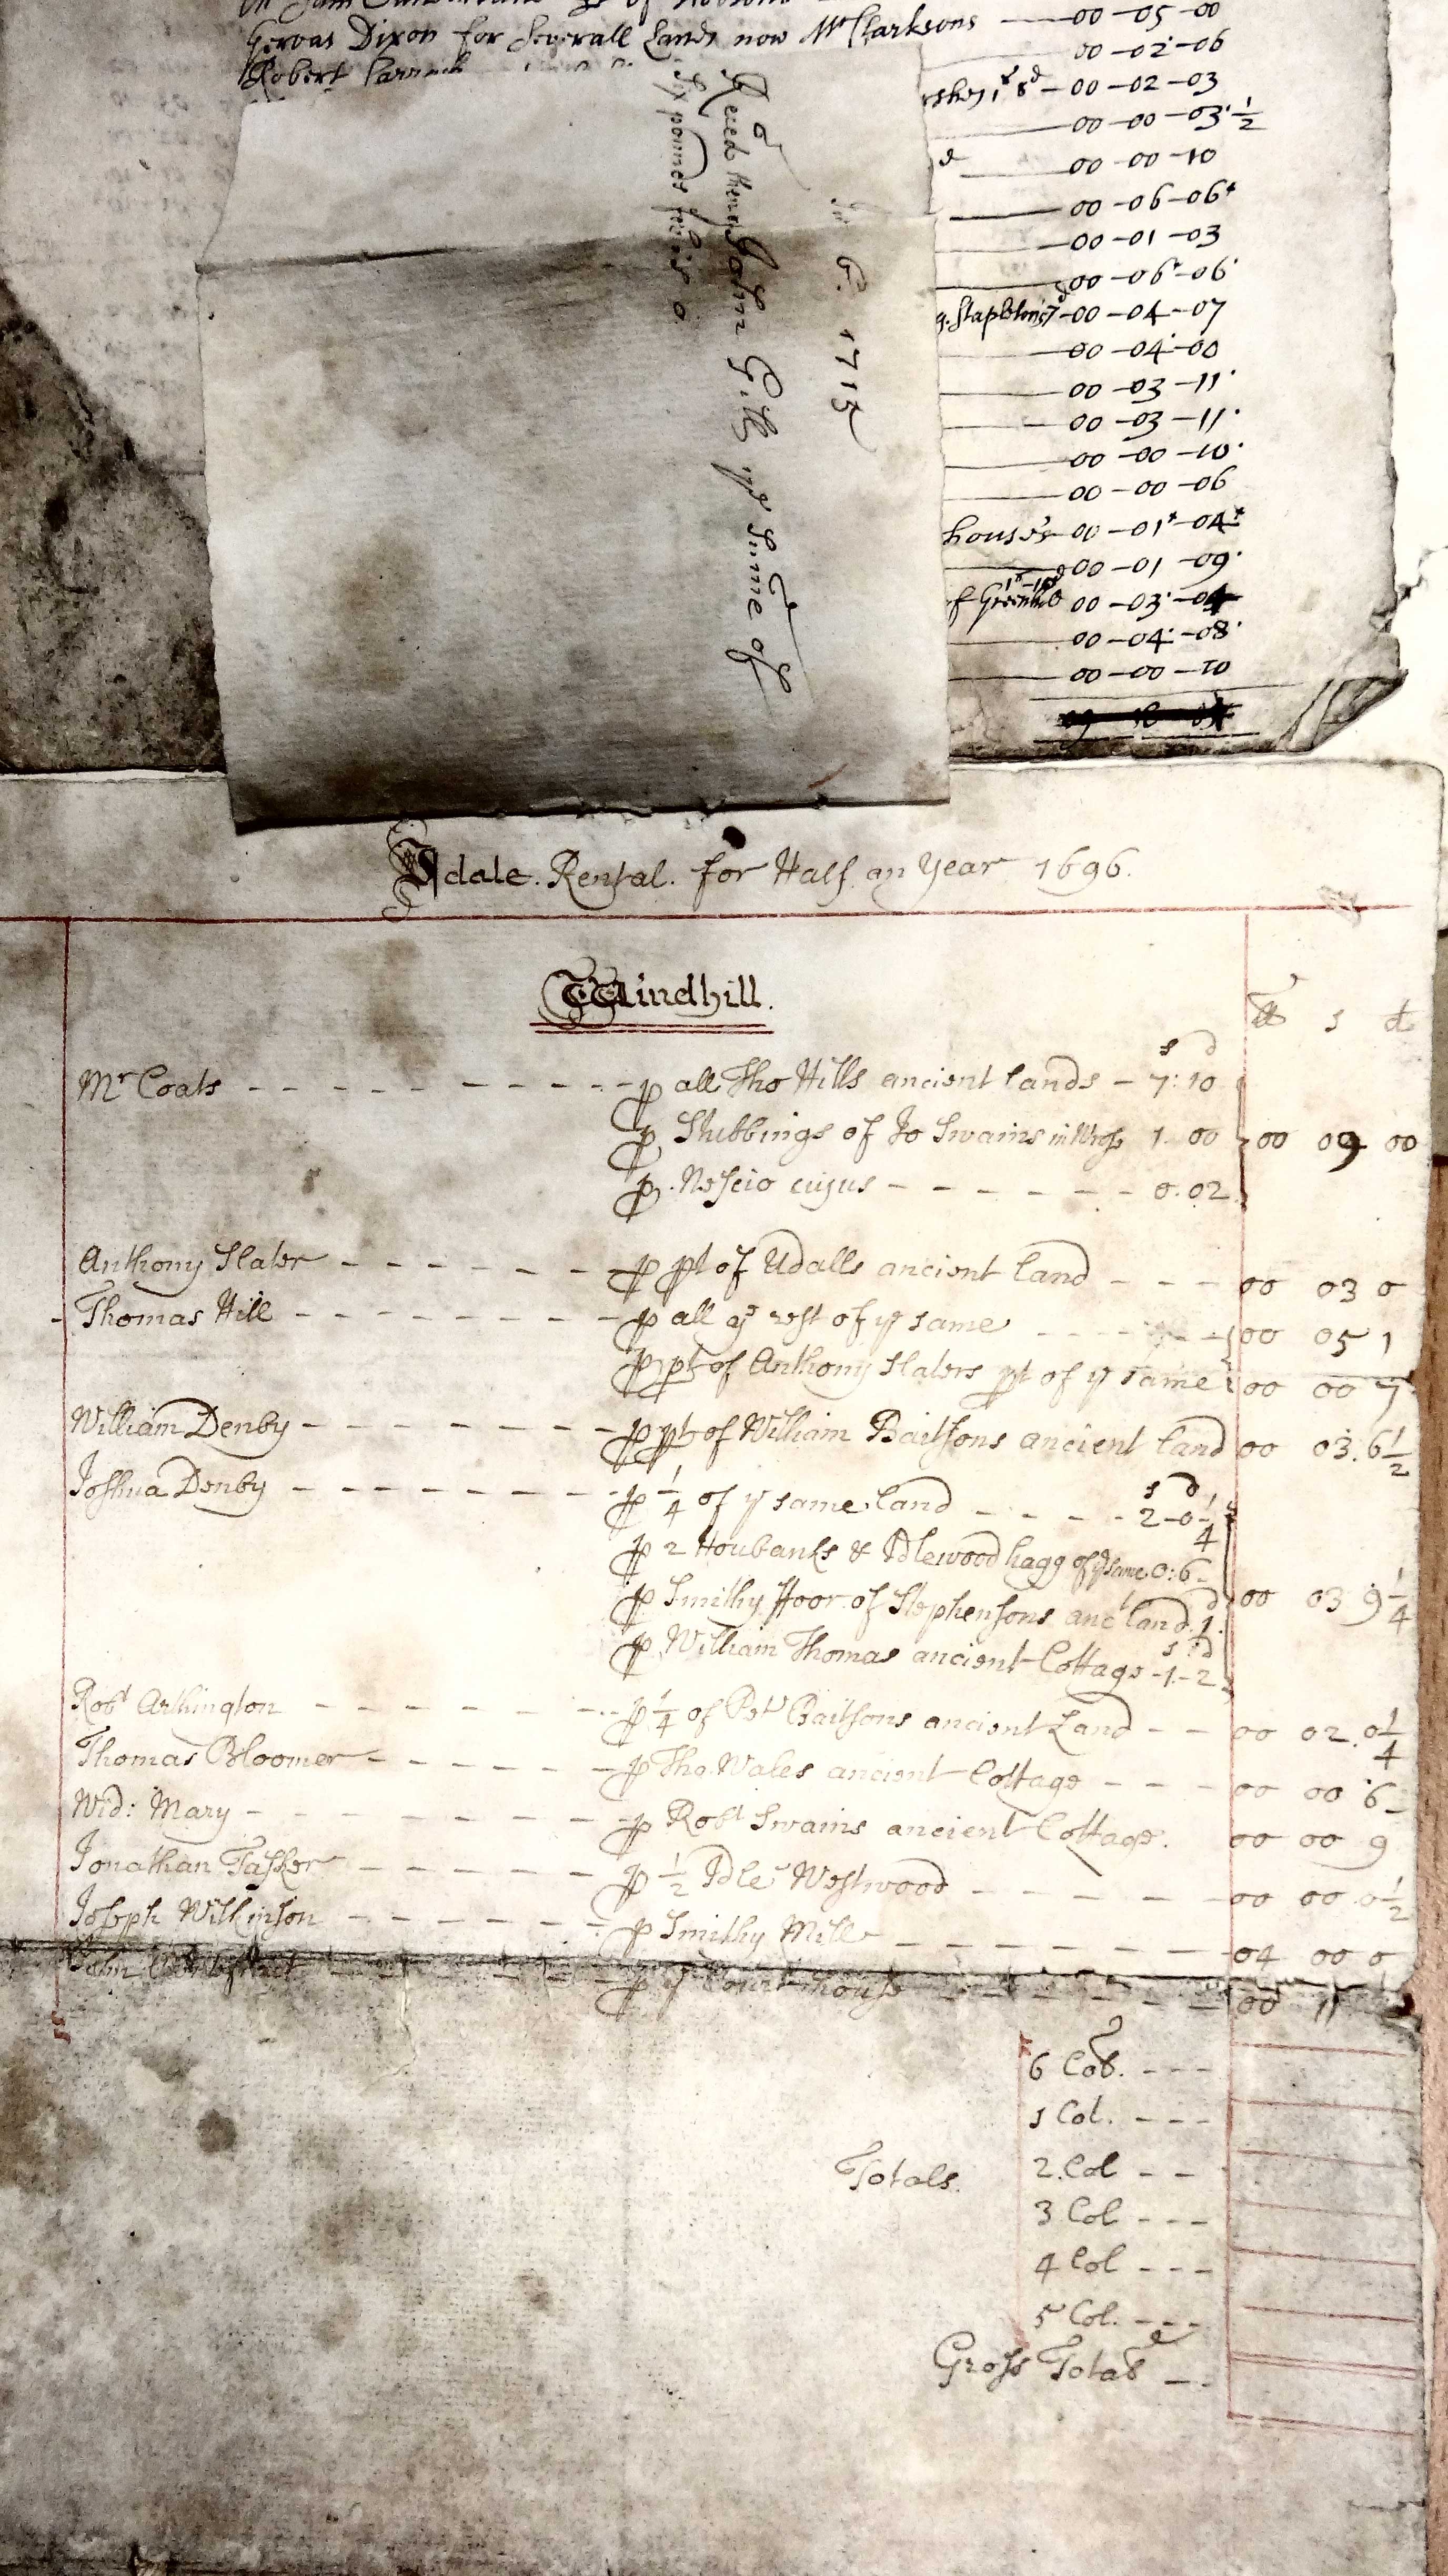 Gervas Dixon for Severall Lands now Mr Clarksons — 00-05-00
Robert
00-02-06
1s 8d - 00-02-03
00-00-03 1/2
d — 00-00-10
00-06-06
00-01-03
00-06-06
Stapletons 7d - 00-04-07
00-04-00
00-03-11
00-03-11
00-00-10
00-00-06
houses 00-01-04
00-01-09
of Greenhill 00-03-04
00-04-08
00-00-10
6. 1715
Reced then of John Gill ye Sume of
Six pounds
Idale. Rental. for Half an Year 1696.
Windhill.
li s d
s d
Mr Coats - - - p all Tho Hills ancient lands - 7: 10
p Stubbings of Jo Swains in Wrose 1. 00 00 09 00
p. Nescio cujus - - - 0. 02
Anthony Slater - - - p pt of Udalls ancient land - - - 00 03 0
Thomas Hill - - - p all ye rest of ye same - - - 00 05 1
p pt of Anthony Slaters pt of ye same 00 00 7
William Denby - - - p pt of William Baitsons ancient land 00 03. 6 1/2
s d
Joshua Denby - - - p 1/4 of ye same land - - - 2-0 1/4
p 2 Houbanks & Idlewood hagg of ye same 0: 6
p Smithy Floor of Stephensons anct land. 1d 00 03 9 1/4
s d
p William Thomas ancient Cottage -1-2
Robt Arthington - - - p 1/4 of Robt Baitsons ancient Land - - 00 02. 0 1/4
Thomas Bloomer - - - p Tho Wales ancient Cottage - - - 00 00 6
Wid: Mary - - - p Robt Swains ancient Cottage. 00 00 9
Jonathan Tasker - - - p 1/2 Idle Westwood - - - 00 00 0 1/2
Joseph Wilkinson - - - p Smithy Mill - - - 04 00 0
John - - - p ye Court house - - - 00 11
6 Col. - - -
1 Col. - - -
Totals. 2. Col - -
3 Col - - -
4 Col - - -
5 Col. - - -
Gross Total - -